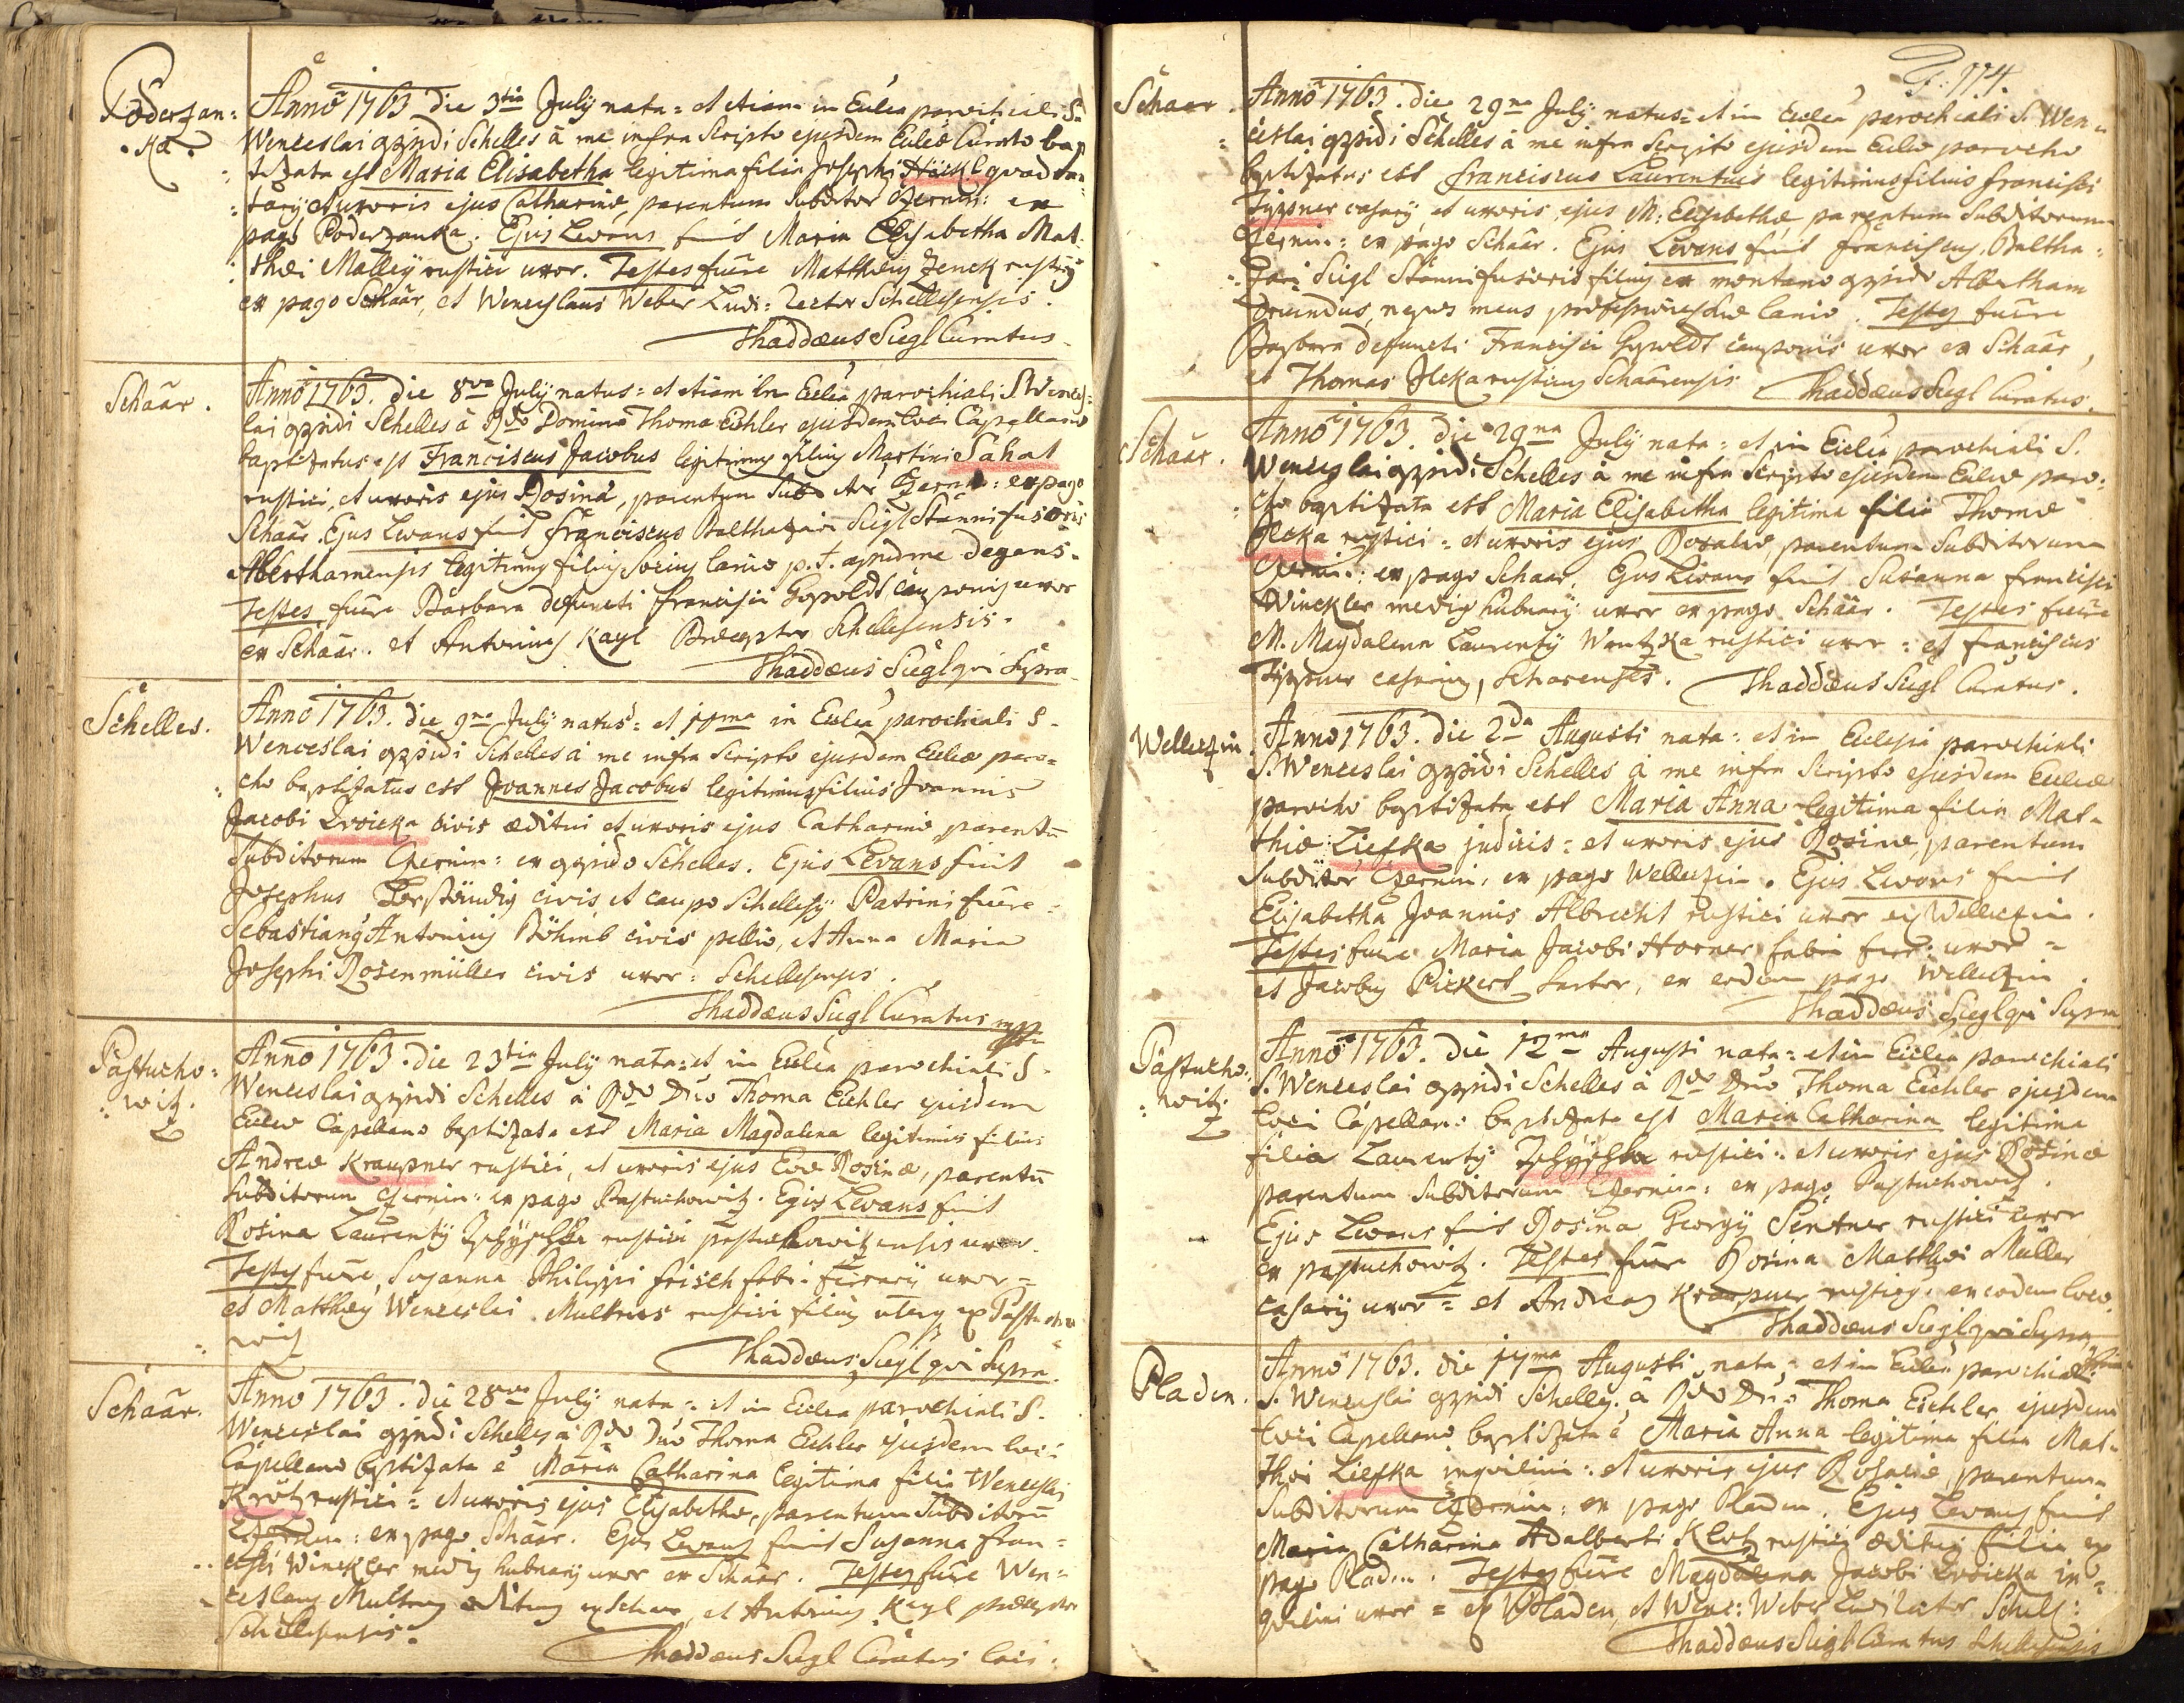 Poderzan=
ka.
Anno 1763 die 3tia July nata= et etiam in Eccle͞a parochiali S.
Wenceslai oppidi Schelles à me infra Scripto ejusdem Eccl͞ae Curato bap
tizata est Maria Elisabetha legitima filia Josephi Häckl quadran=
tarij et uxoris ejus Catharinæ, parentum Subditor Czernin: ex
pago Poderzanka. Ejus Levans fuit Maria Elisabetha Mat=
thæi Malleÿ rustici uxor. Testes fuêre Matthæus Zenck rusticus
ex pago Schaar, et Wenceslaus Weber Ludi: Rector Schellesensis.
Thaddæus Siegl Curatus
Schaar.
Anno 1763. die 8va July natus= et etiam in Eccle͞a parochiali S. Wences=
lai oppidi Schelles à Rdo Domino Thoma Eichler ejusdem loci Capellano
baptizatus est Franciscus Jacobus legitimus filius Martini Sahat
rustici, et uxoris ejus Rosinæ, parentum Subditor Czernin: ex pago
Schaar. Ejus Levans fuit Franciscus Balthazari Siegl Stannifusoris
Aberthamensis legitimus filius Socius lanio p.t. apud me degens.
Testes fuêre Barbara defuncti Francisci Gopoldt cauponis uxor
ex Schaar. et Antonius Kayl Præceptor Schellesensis.
Thaddæus Siegl qui Supra
Schelles.
Anno 1763. die 9na July natus= et 11ma in Eccle͞a parochiali S.
Wenceslai oppidi Schelles à me infra Scripto ejusdem Eccl͞ae paro=
cho baptizatus est Joannes Jacobus legitimus filius Joannis
Jacobi Zroicka civis æditui et uxoris ejus Catharinæ parentu͞
Subditorum Czernin: ex oppido Schelles. Ejus Levans fuit
Josephus Verständig civis et caupo Schellesij Patrini fuêre
Sebastianus Antonius Böhmb civis pellio, et Anna Maria
Josephi Rosenmüller civis uxor: Schellesensis.
Thaddæus Siegl Curatus mpp
Pastucho=
witz.
Anno 1763. die 23tia July nata= et in Eccle͞a parochiali S.
Wenceslai oppidi Schelles à Rdo Dno Thoma Eichler ejusdem
Eccl͞ae Capellano baptizata est Maria Magdalena legitima filia
Andreæ Kraupner rustici, et uxoris ejus Evæ Rosinæ, parentu͞
Subditorum Czernin: ex pago Pastuchowitz. Ejus Levans fuit
Rosina Laurentij rustici pastuchowitzensis uxor.
Testes fuêre, Susanna Philippi Frisch fabri ferrarij uxor=
et Matthæus Wenceslai Multrus rustici filius uterq ex Pastucho
witz
Thaddæus Siegl qui Supra.
Schaar.
Anno 1763. die 28va July nata= et in Eccle͞a parochiali S.
Wenceslai oppidi Schelles à Rdo Dno Thoma Eichler ejusdem loci
Capellano baptizata e Maria Catharina legitima filia Wenceslai
Krötz rustici= et uxoris ejus Elisabethæ, parentum Subditoru͞
Czernin: ex pago Schaar. Ejus Levans fuit Susanna Fran=
cisci Winckler medij hubnarij uxor ex Schaar. Testes fuêre Wen=
ceslaus Multrus ædituus ex Schaar, et Antonius Kayl præceptor
Schellesensis.
Thaddæus Siegl Curatus loci.
F: 174.
Schaar.
Anno 1763. die 29na July natus= et in Eccle͞a parochiali S. Wen=
ceslai oppidi Schelles à me infra Scripto ejusdem Eccl͞ae parocho
baptizatus est Franciscus Laurentius legitimus filius Francisci
Tippner casarij, et uxoris ejus M: Elisabethæ parentum Subditorum
Czernin: ex pago Schaar. Ejus Levans fuit Franciscus Baltha=
zari Siegl Stannifusoris filius ex montano oppido Abertham
oriundus, nepos meus professionis suæ lanio. Testes fuêre
Barbara defuncti Francisci Gopoldt cauponis uxor ex Schaar,
et Thomas Jlcka rusticus Schaarensis
Thaddæus Siegl Curatus.
Schaar.
Anno 1763. die 29na July nata= et in Eccle͞a parochiali S.
Wenceslai oppidi Schelles à me infra Scripto ejusdem Eccl͞ae paro=
cho baptizata est Maria Elisabetha legitima filia Thomæ
Jlcka rustici= et uxoris ejus Rosaliæ, parentum Subditorum
Czernin: ex pago Schaar. Ejus Levans fuit Susanna Francisci
Winckler medij hubnarij uxor ex pago Schaar. Testes fuêre
M. Magdalena Laurentij Wrutzka rustici uxor: et Franciscus
Tippner casarius, Scharensis.
Thaddæus Siegl Curatus.
Welletzin
Anno 1763. die 2da Augusti nata= et in Ecclesia parochiali
S. Wenceslai oppidi Schelles à me infra Scripto ejusdem Eccl͞ae
parocho baptizata est Maria Anna legitima filia Mat=
thiæ Liefka judicis= et uxoris ejus Rosinæ, parentum
Subditor Czernin: ex pago Welletzin. Ejus Levans fuit
Elisabetha Joannis Albrecht rustici uxor ex Welletzin.
Testes fuêre Maria Jacobi Horner fabri ferr: uxor=
et Jacobus Pickert Sartor, ex eodem pago Welletzin.
Thaddæus Siegl qui Supra
Pastucho=
witz
Anno 1763. die 12ma Augusti nata= et in Eccle͞a parochiali
S. Wenceslai oppidi Schelles à Rdo Dno Thoma Eichler ejusdem
loci Capellan: baptizata est Maria Catharina legitima
filia Laurentij rustici: et uxoris ejus Rosinæ
parentum Subditorum Czernin: ex pago Pastuchowitz.
Ejus Levans fuit Rosina Georgij Sentner rustici uxor
ex pastuchowitz. Testes fuêre Rosina Matthæi Müller
casarij uxor= et Andreas Kraupner rusticus ex eodem loco.
Thaddæus Siegl qui Supra
Pladen.
Anno 1763. die 17ma Augusti nata= et in Eccle͞a parochiali
S. Wenceslai oppidi Schelles, à Rdo Dno Thoma Eichler ejusdem
loci Capellano baptizata e Maria Anna legitima filia Mat=
thæi Liefka inquilini: et uxoris ejus Rosaliæ parentum
Subditorum Czernin: ex pago Pladen. Ejus Levans fuit
Maria Catharina Adalberti Klotz rustici æditui filia ex
pago Pladen. Testes fuêre Magdalena Jacobi Zroicka in=
quilini uxor= ex Pladen, et Wenc: Weber Ludirector Schels:
Thaddæus Siegl Curatus Schellesensis